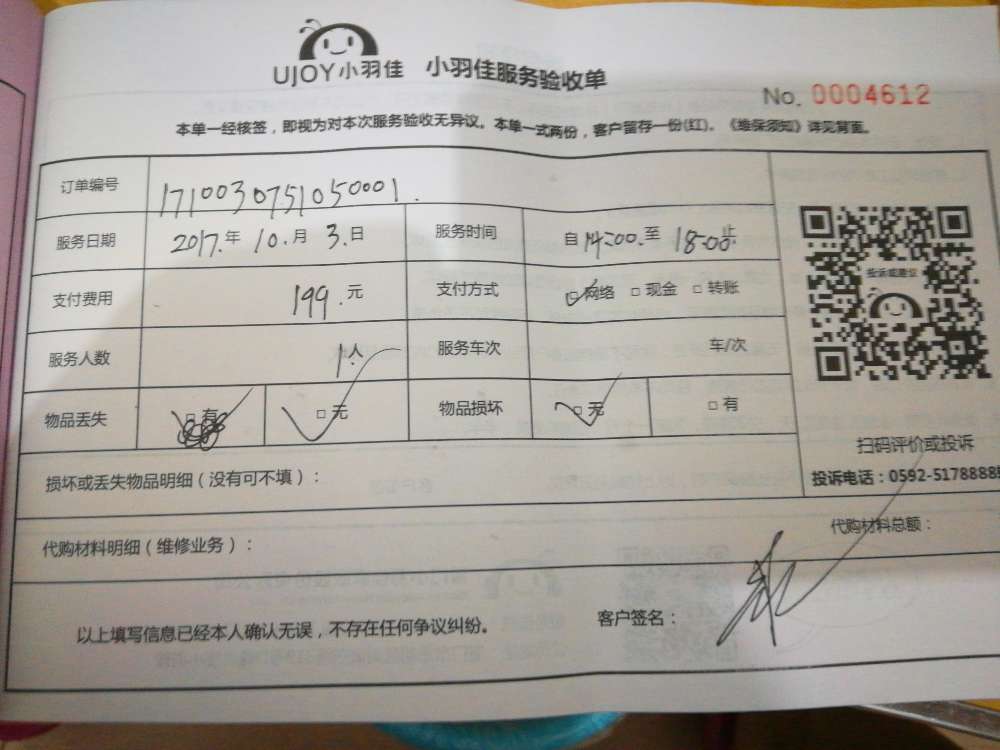 UJOY小羽佳 小羽佳服务验收单
No. 0004612
本单一经核签，即视为对本次服务验收无异议。本单一式两份，客户留存一份(红)。《维保须知》详见背面。
订单编号 1710030751050001.
服务日期 2017.年 10.月 3.日 服务时间 自14:00.至 18:00止
支付费用 199.元 支付方式 □网络 □现金 □转账
服务人数 1人 服务车次 车/次
物品丢失 □有 □无 物品损坏 □无 □有
投诉或建议
扫码评价或投诉
损坏或丢失物品明细（没有可不填）：
投诉电话：0592-5178888
代购材料明细（维修业务）：
代购材料总额：
以上填写信息已经本人确认无误，不存在任何争议纠纷。
客户签名：